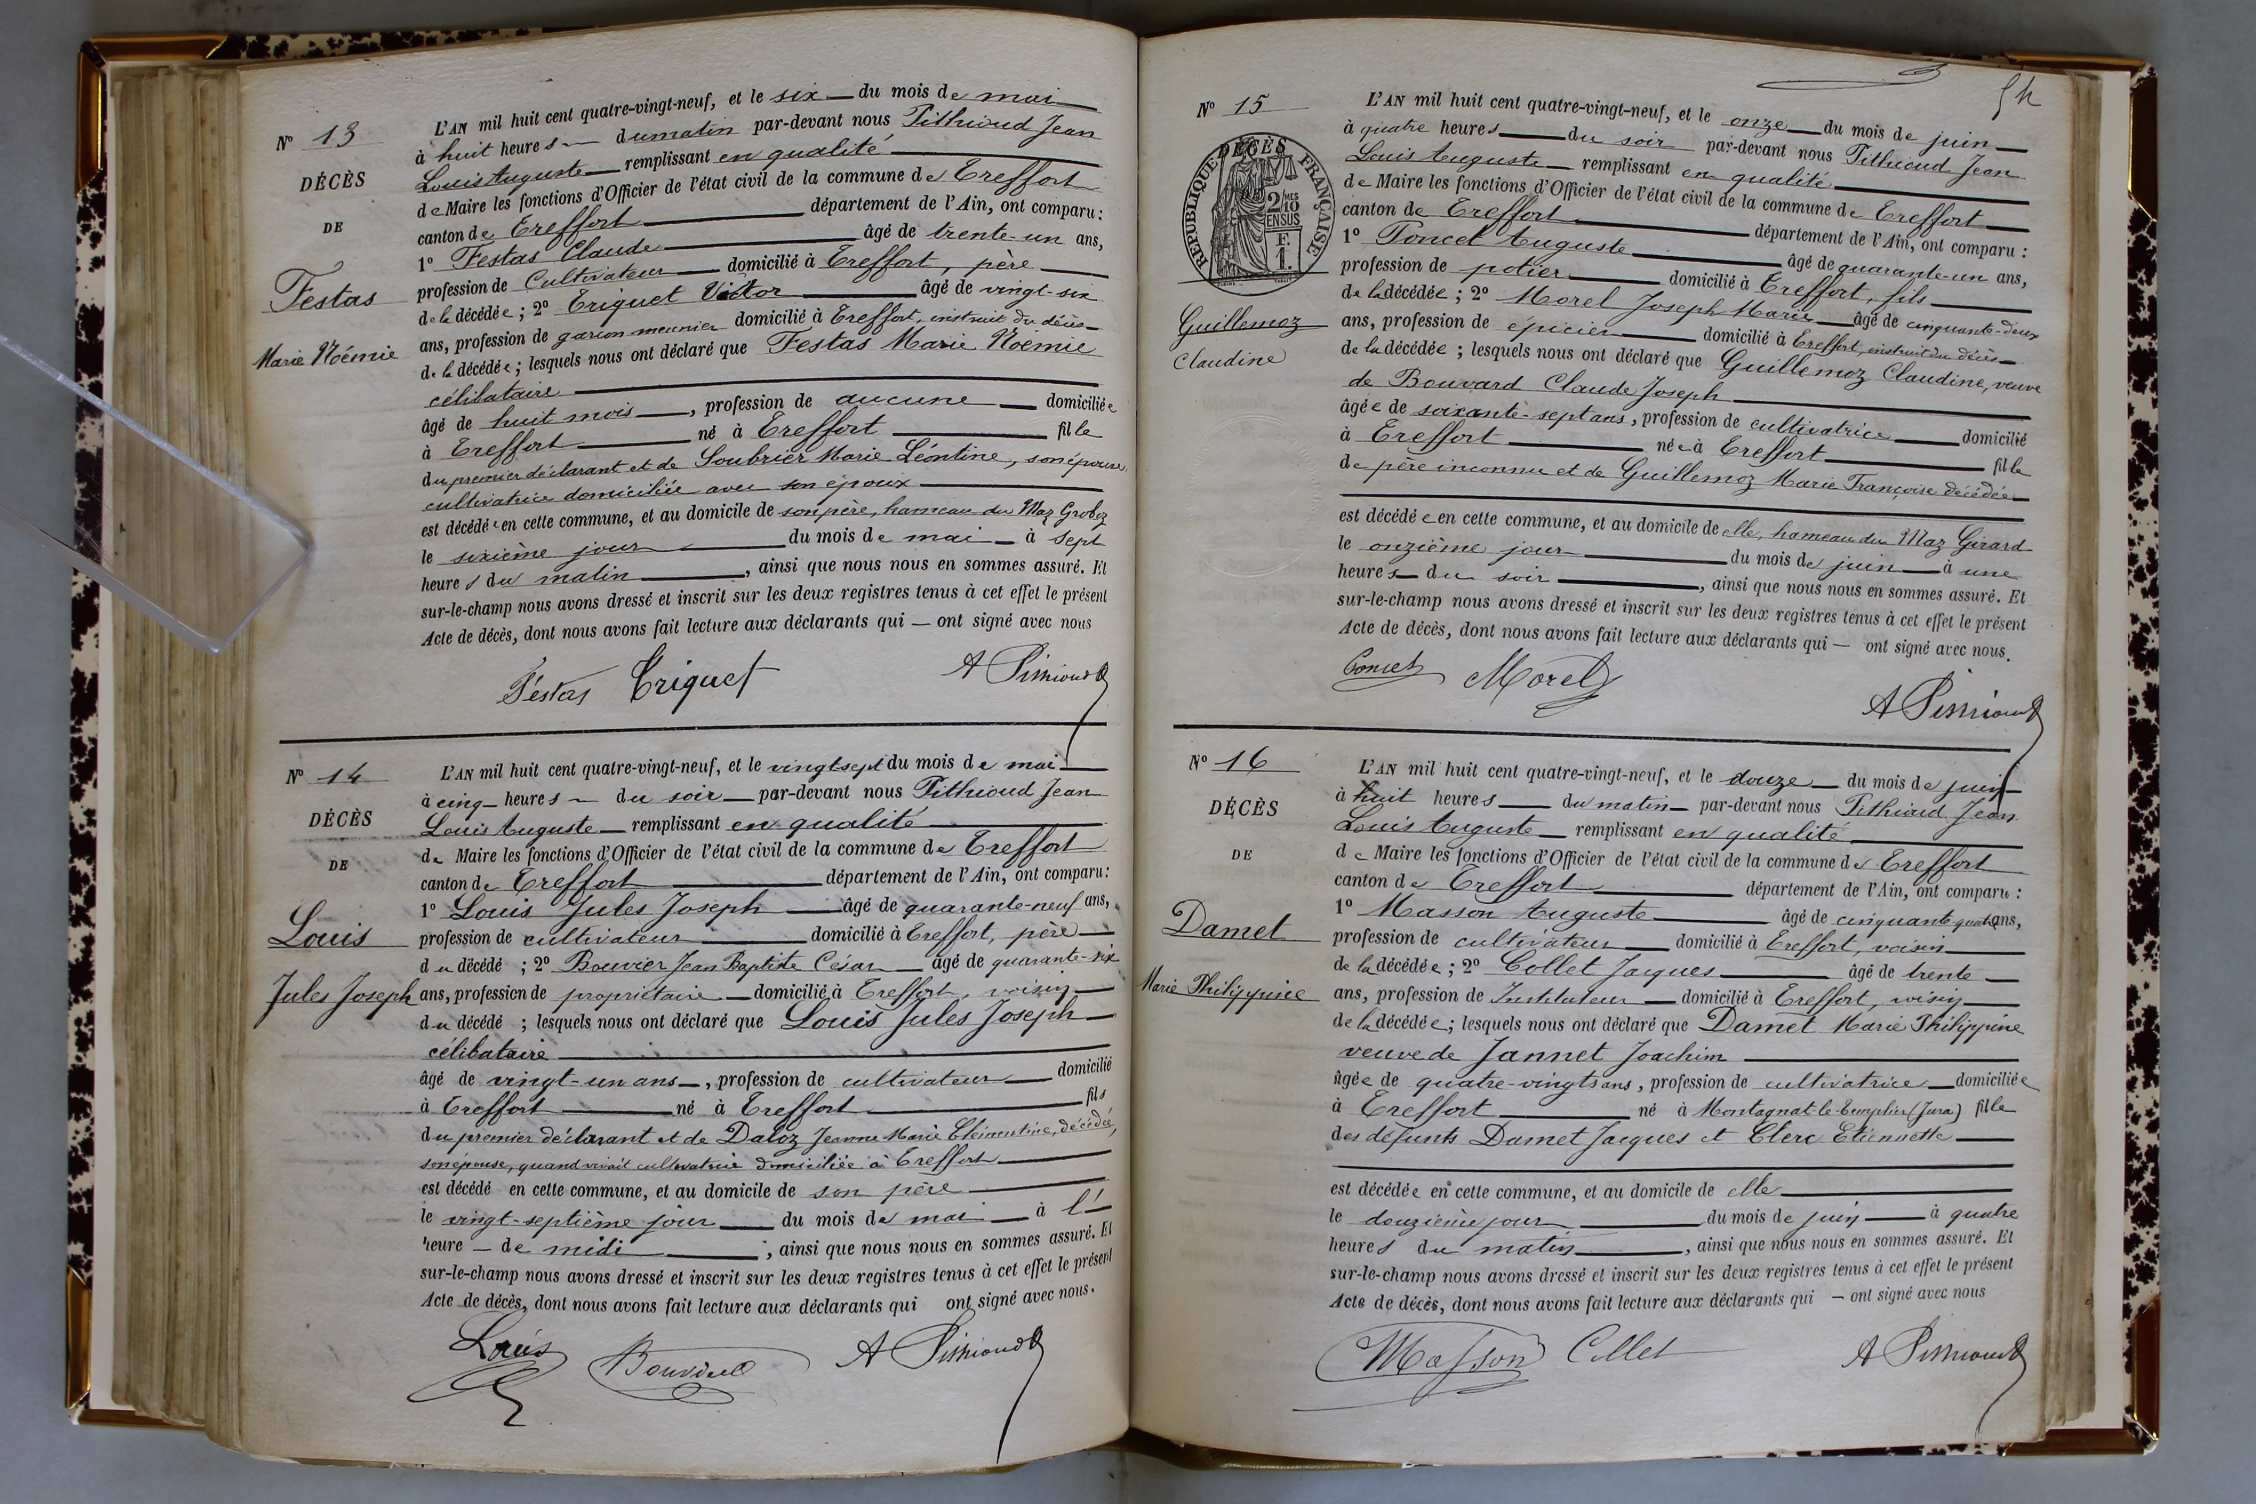 Nº 13
DÉCÈS
DE
Festas
Marie Noémie
L'AN mil huit cent quatre-vingt-neuf, et le six du mois de mai
à huit heures du matin par-devant nous Pithioud Jean
Louis Auguste remplissant en qualité
de Maire les fonctions d'Officier de l'état civil de la commune de Treffort
canton de Treffort département de l'Ain, ont comparu :
1º Festas Claude âgé de trente-un ans,
profession de Cultivateur domicilié à Treffort, père
de la décédée ; 2º Triquet Victor âgé de vingt-six
ans, profession de garçon meunier domicilié à Treffort, instruit du décès
de la décédée ; lesquels nous ont déclaré que Festas Marie Noemie
célibataire
âgé de huit mois, profession de aucune domiciliée
à Treffort né à Treffort fille
du premier déclarant et de Soubrier Marie Léontine, son épouse
cultivatrice domiciliée avec son époux
est décédée en cette commune, et au domicile de son père, hameau du Maz Groboz
le sixième jour du mois de mai à sept
heures du matin, ainsi que nous nous en sommes assuré. Et
sur-le-champ nous avons dressé et inscrit sur les deux registres tenus à cet effet le présent
Acte de décès, dont nous avons fait lecture aux déclarants qui — ont signé avec nous
Festas Triquet A Pithioud
Nº 14
DÉCÈS
DE
Louis
Jules Joseph
L'AN mil huit cent quatre-vingt-neuf, et le vingt sept du mois de mai
à cinq heures du soir par-devant nous Pithioud Jean
Louis Auguste remplissant en qualité
de Maire les fonctions d'Officier de l'état civil de la commune de Treffort
canton de Treffort département de l'Ain, ont comparu :
1º Louis Jules Joseph âgé de quarante-neuf ans,
profession de cultivateur domicilié à Treffort, père
du décédé ; 2º Bouvier Jean Baptiste César âgé de quarante-six
ans, profession de propriétaire domicilié à Treffort, voisin
du décédé ; lesquels nous ont déclaré que Louis Jules Joseph
célibataire
âgé de vingt-un ans, profession de cultivateur domicilié
à Treffort né à Treffort fils
du premier déclarant et de Daloz Jeanne Marie Clémentine, décédée,
son épouse, quand vivait cultivatrice domiciliée à Treffort
est décédé en cette commune, et au domicile de son père
le vingt-septième jour du mois de mai à l'
heure — de midi, ainsi que nous nous en sommes assuré. Et
sur-le-champ nous avons dressé et inscrit sur les deux registres tenus à cet effet le présent
Acte de décès, dont nous avons fait lecture aux déclarants qui ont signé avec nous.
Louis Bouvier A Pithioud
Nº 15
DÉCÈS
RÉPUBLIQUE FRANÇAISE
2/10
MES
EN SUS
F.
1.
Guillemoz
Claudine
L'AN mil huit cent quatre-vingt-neuf, et le onze du mois de juin
à quatre heures du soir par-devant nous Pithioud Jean
Louis Auguste remplissant en qualité
de Maire les fonctions d'Officier de l'état civil de la commune de Treffort
canton de Treffort département de l'Ain, ont comparu :
1º Poncet Auguste âgé de quarante-un ans,
profession de potier domicilié à Treffort, fils
de la décédée ; 2º Morel Joseph Marie âgé de cinquante-deux
ans, profession de épicier domicilié à Treffort, instruit du décès
de la décédée ; lesquels nous ont déclaré que Guillemoz Claudine, veuve
de Bouvard Claude Joseph
âgée de soixante-sept ans, profession de cultivatrice domicilié
à Treffort née à Treffort fille
de père inconnu et de Guillemoz Marie Françoise décédée
est décédée en cette commune, et au domicile de elle, hameau du Maz Girard
le onzième jour du mois de juin à une
heures du soir, ainsi que nous nous en sommes assuré. Et
sur-le-champ nous avons dressé et inscrit sur les deux registres tenus à cet effet le présent
Acte de décès, dont nous avons fait lecture aux déclarants qui — ont signé avec nous.
Poncet Morel A Pithioud
Nº 16
DÉCÈS
DE
Damet
Marie Philippine
L'AN mil huit cent quatre-vingt-neuf, et le douze du mois de juin
à huit heures du matin par-devant nous Pithioud Jean
Louis Auguste remplissant en qualité
de Maire les fonctions d'Officier de l'état civil de la commune de Treffort
canton de Treffort département de l'Ain, ont comparu :
1º Masson Auguste âgé de cinquante-quatre ans,
profession de cultivateur domicilié à Treffort, voisin
de la décédée ; 2º Collet Jacques âgé de trente
ans, profession de Instituteur domicilié à Treffort, voisin
de la décédée ; lesquels nous ont déclaré que Damet Marie Philippine
veuve de Jannet Joachim
âgée de quatre-vingts ans, profession de cultivatrice domiciliée
à Treffort né à Montagnat-le-Templier (Jura) fille
des défunts Damet Jacques et Clerc Etiennette
est décédée en cette commune, et au domicile de elle
le douzième jour du mois de juin à quatre
heures du matin, ainsi que nous nous en sommes assuré. Et
sur-le-champ nous avons dressé et inscrit sur les deux registres tenus à cet effet le présent
Acte de décès, dont nous avons fait lecture aux déclarants qui — ont signé avec nous
Masson Collet A Pithioud